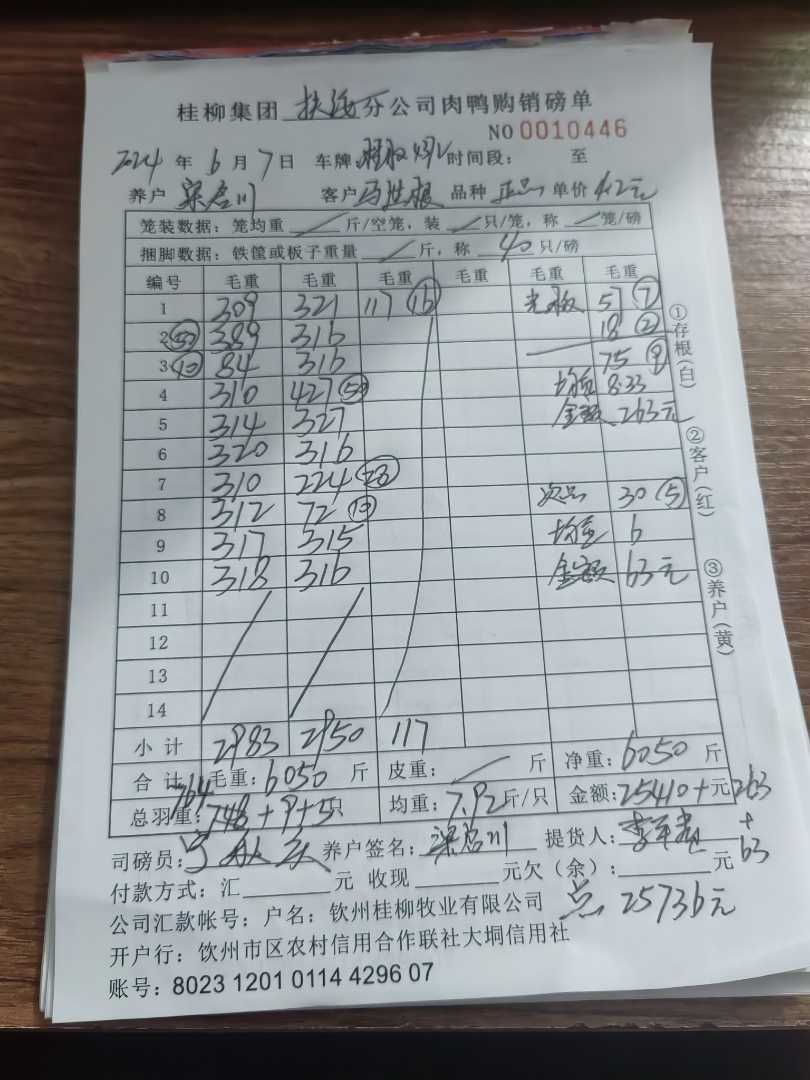 桂柳集团 扶绥分公司肉鸭购销磅单
NO 0010446
2024 年 6 月 7 日 车牌: 时间段: 至
养户 梁启川 客户 马世根 品种 正品 单价 4.2元
笼装数据: 笼均重 / 斤/空笼, 装 / 只/笼, 称 / 笼/磅
捆脚数据: 铁筐或板子重量 / 斤, 称 40 只/磅
编号 毛重 毛重 毛重 毛重 毛重 毛重
1 309 321 117 (16) 光板 57 (7)
2 (50) 389 316 18 (2)
3 (10) 84 316 75 (9)
4 310 427 (54) 均重 8.33
5 314 327 金额 263元
6 320 316
7 310 224 (28)
8 312 72 (10) 次品 30 (5)
9 317 315 均重 6
10 318 316 金额 63元
11
12
13
14
小计 2983 2950 117
合计 毛重: 6050 斤 皮重: / 斤 净重: 6050 斤
764
总羽重: 748+9+5只 均重: 7.92斤/只 金额: 25410+元263
+
63
司磅员: 养户签名: 梁启川 提货人:
付款方式: 汇 元 收现 元欠(余): 元
公司汇款帐号: 户名: 钦州桂柳牧业有限公司 总 25736元
开户行: 钦州市区农村信用合作联社大垌信用社
账号: 8023 1201 0114 4296 07
①存根(白)
②客户(红)
③养户(黄)